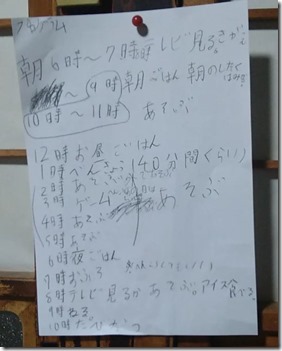 朝6時~7時 テレビ見る
~9時 朝ごはん 朝のしたく
10時~11時 あそぶ
12時お昼ごはん
1時べんきょう(40分間くらい)
2時あそぶ
3時ゲーム あそぶ
4時あそぶ
5時あそぶ
6時夜ごはん
7時おふろ
8時テレビ見るかあそぶ。アイス食べる。
9時ねる
10時